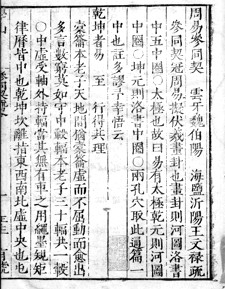 周易參同契 雲牙魏伯陽 海鹽沂陽王文祿疏
參同契冠周易契伏羲畫卦也畫卦則河圖洛書
中五中〇太極也故曰易有太極乾元則河圖
中〇坤元則洛書中〇兩孔穴取此這篇一
中也註多謬予幸悟云
乾坤者易 至 行得其理
橐籥本老子天地間猶橐籥虛而不屈動而愈出
多言數窮莫如守中轂輻本老子三十輻共一轂
〇中虛受軸外持輻當其無有車之用繩墨規矩
律曆皆中也乾坤坎離指東西南北虛中央也也